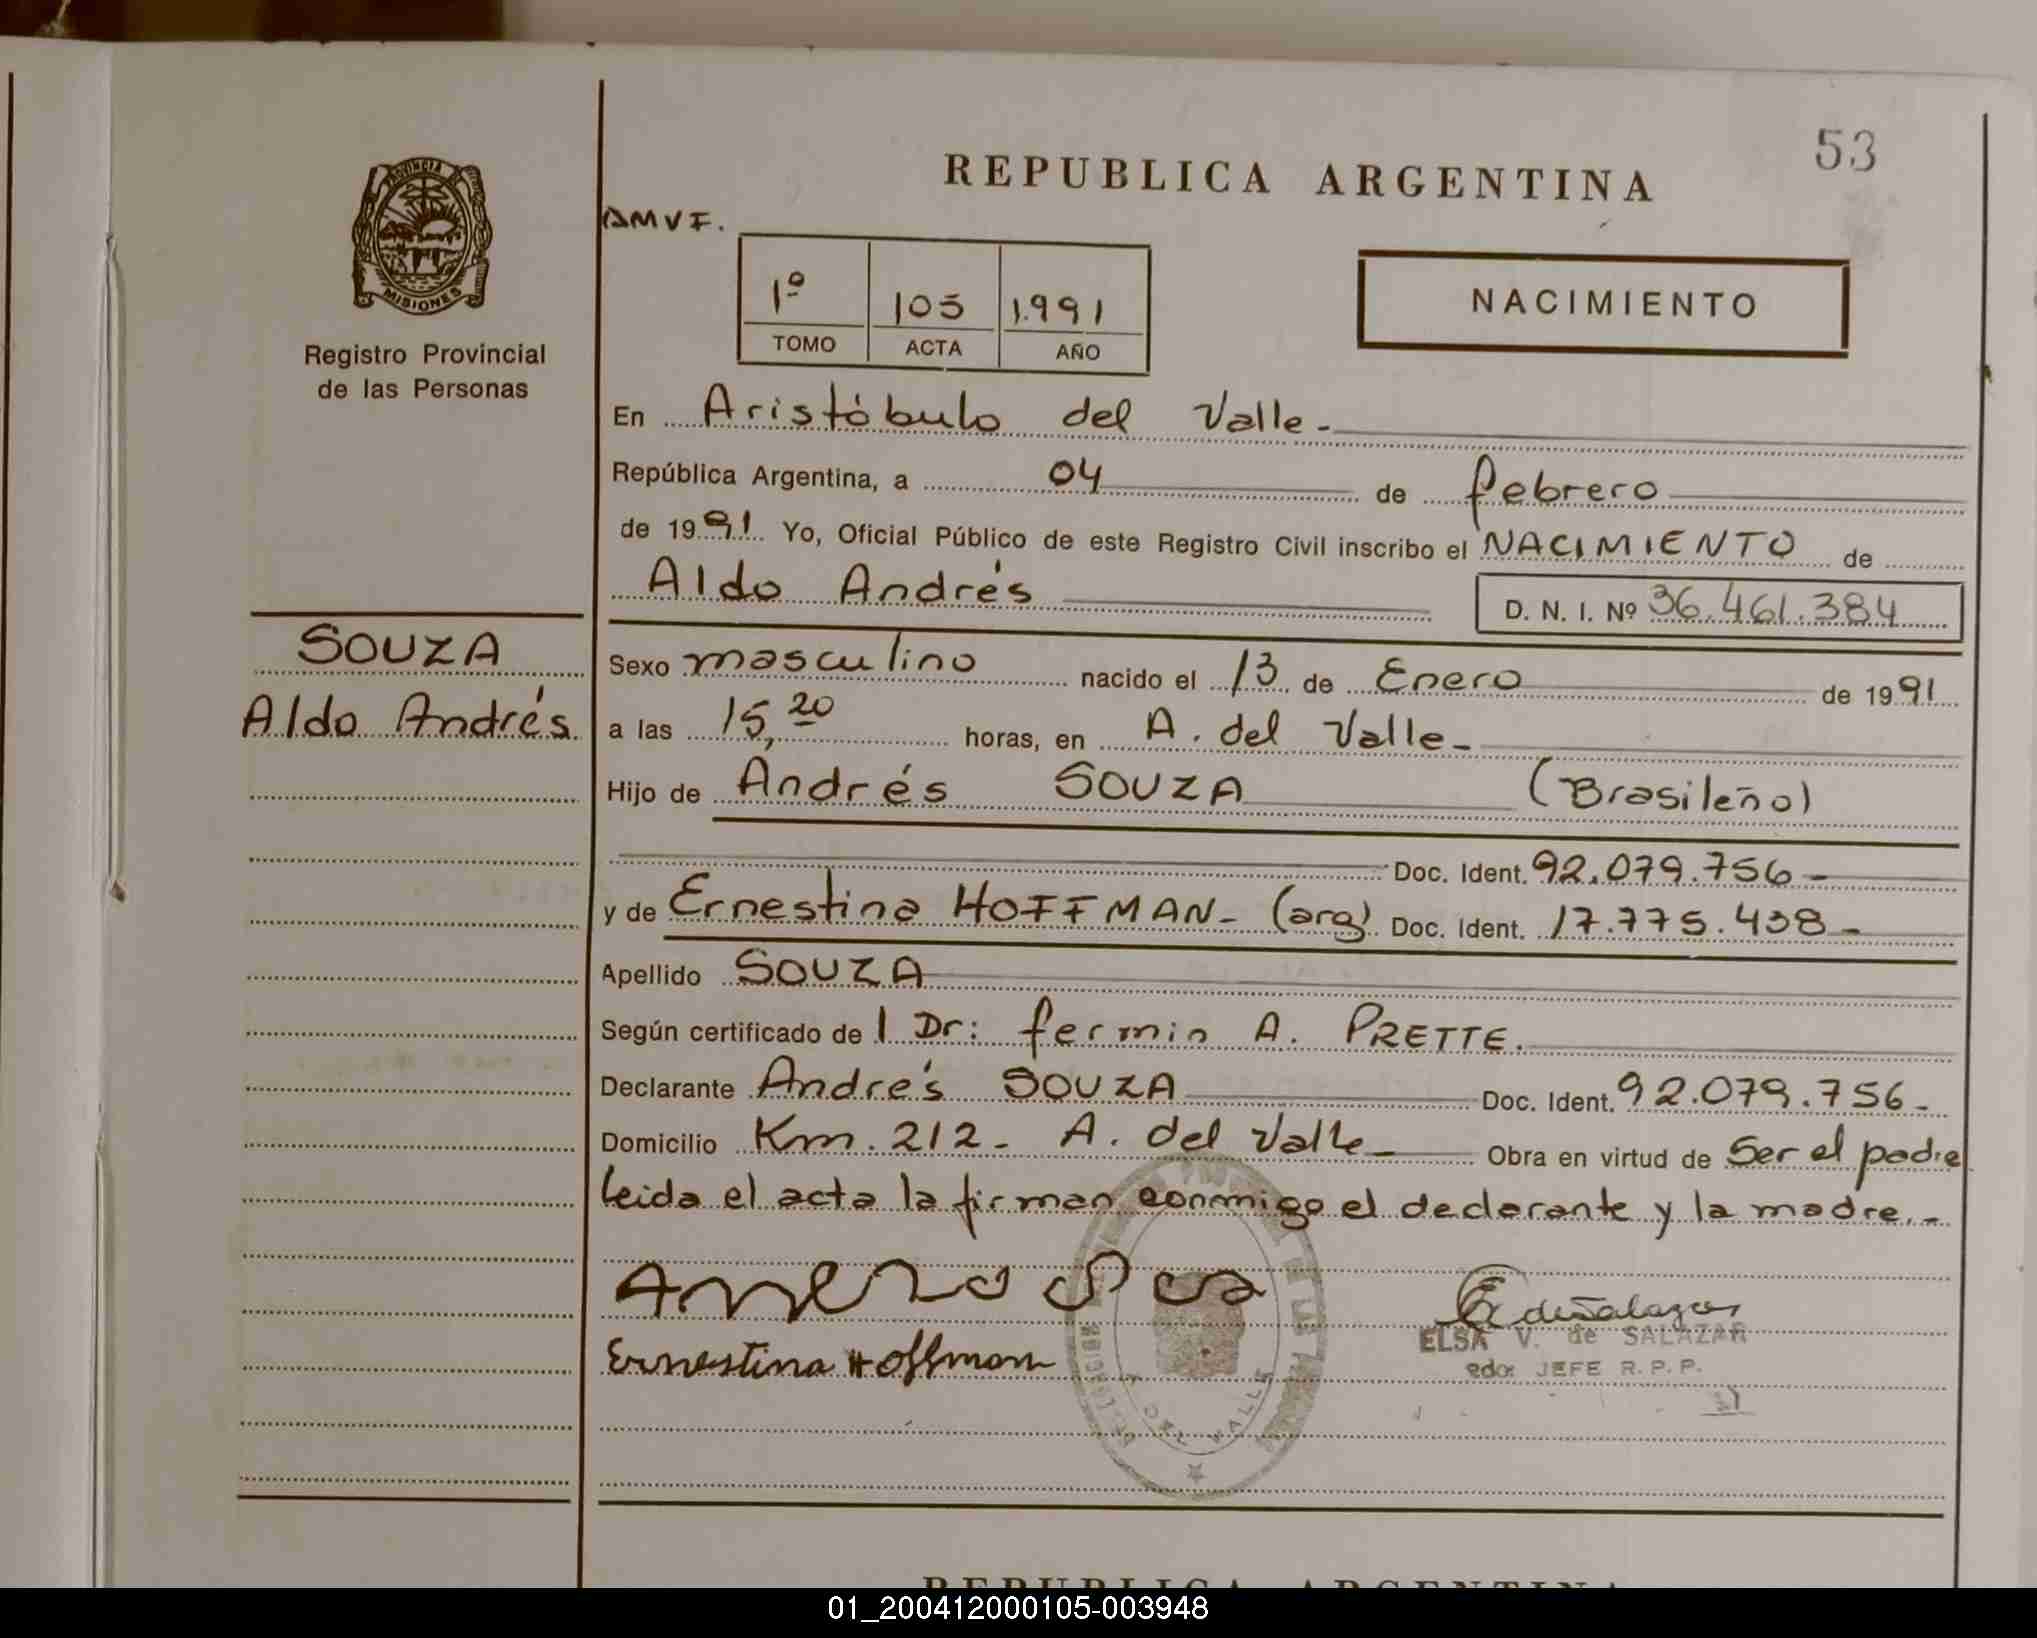 53
REPUBLICA ARGENTINA
AMVF.
PROVINCIA DE
MISIONES
Registro Provincial
de las Personas
1º 105 1.991
TOMO ACTA AÑO
NACIMIENTO
En Aristóbulo del Valle.-
República Argentina, a 04 de febrero
de 1991 Yo, Oficial Público de este Registro Civil inscribo el NACIMIENTO de
Aldo Andrés D. N. I. Nº 36.461.384
SOUZA
Aldo Andrés
Sexo masculino nacido el 13 de Enero de 1991
a las 15,20 horas, en A. del Valle-
Hijo de Andrés SOUZA (Brasileño)
Doc. Ident. 92.079.756-
y de Ernestina HOFFMAN- (arg) Doc. Ident. 17.775.438-
Apellido SOUZA
Según certificado de l Dr: fermin A. PRETTE.
Declarante Andrés SOUZA Doc. Ident. 92.079.756-
Domicilio Km. 212- A. del Valle- Obra en virtud de Ser el padre
leida el acta la firman conmigo el declarante y la madre.-
Ernestina Hoffman
ELSA V. de SALAZAR
JEFE R.P.P.
DEL VALLE
REPUBLICA ARGENTINA
01_200412000105-003948